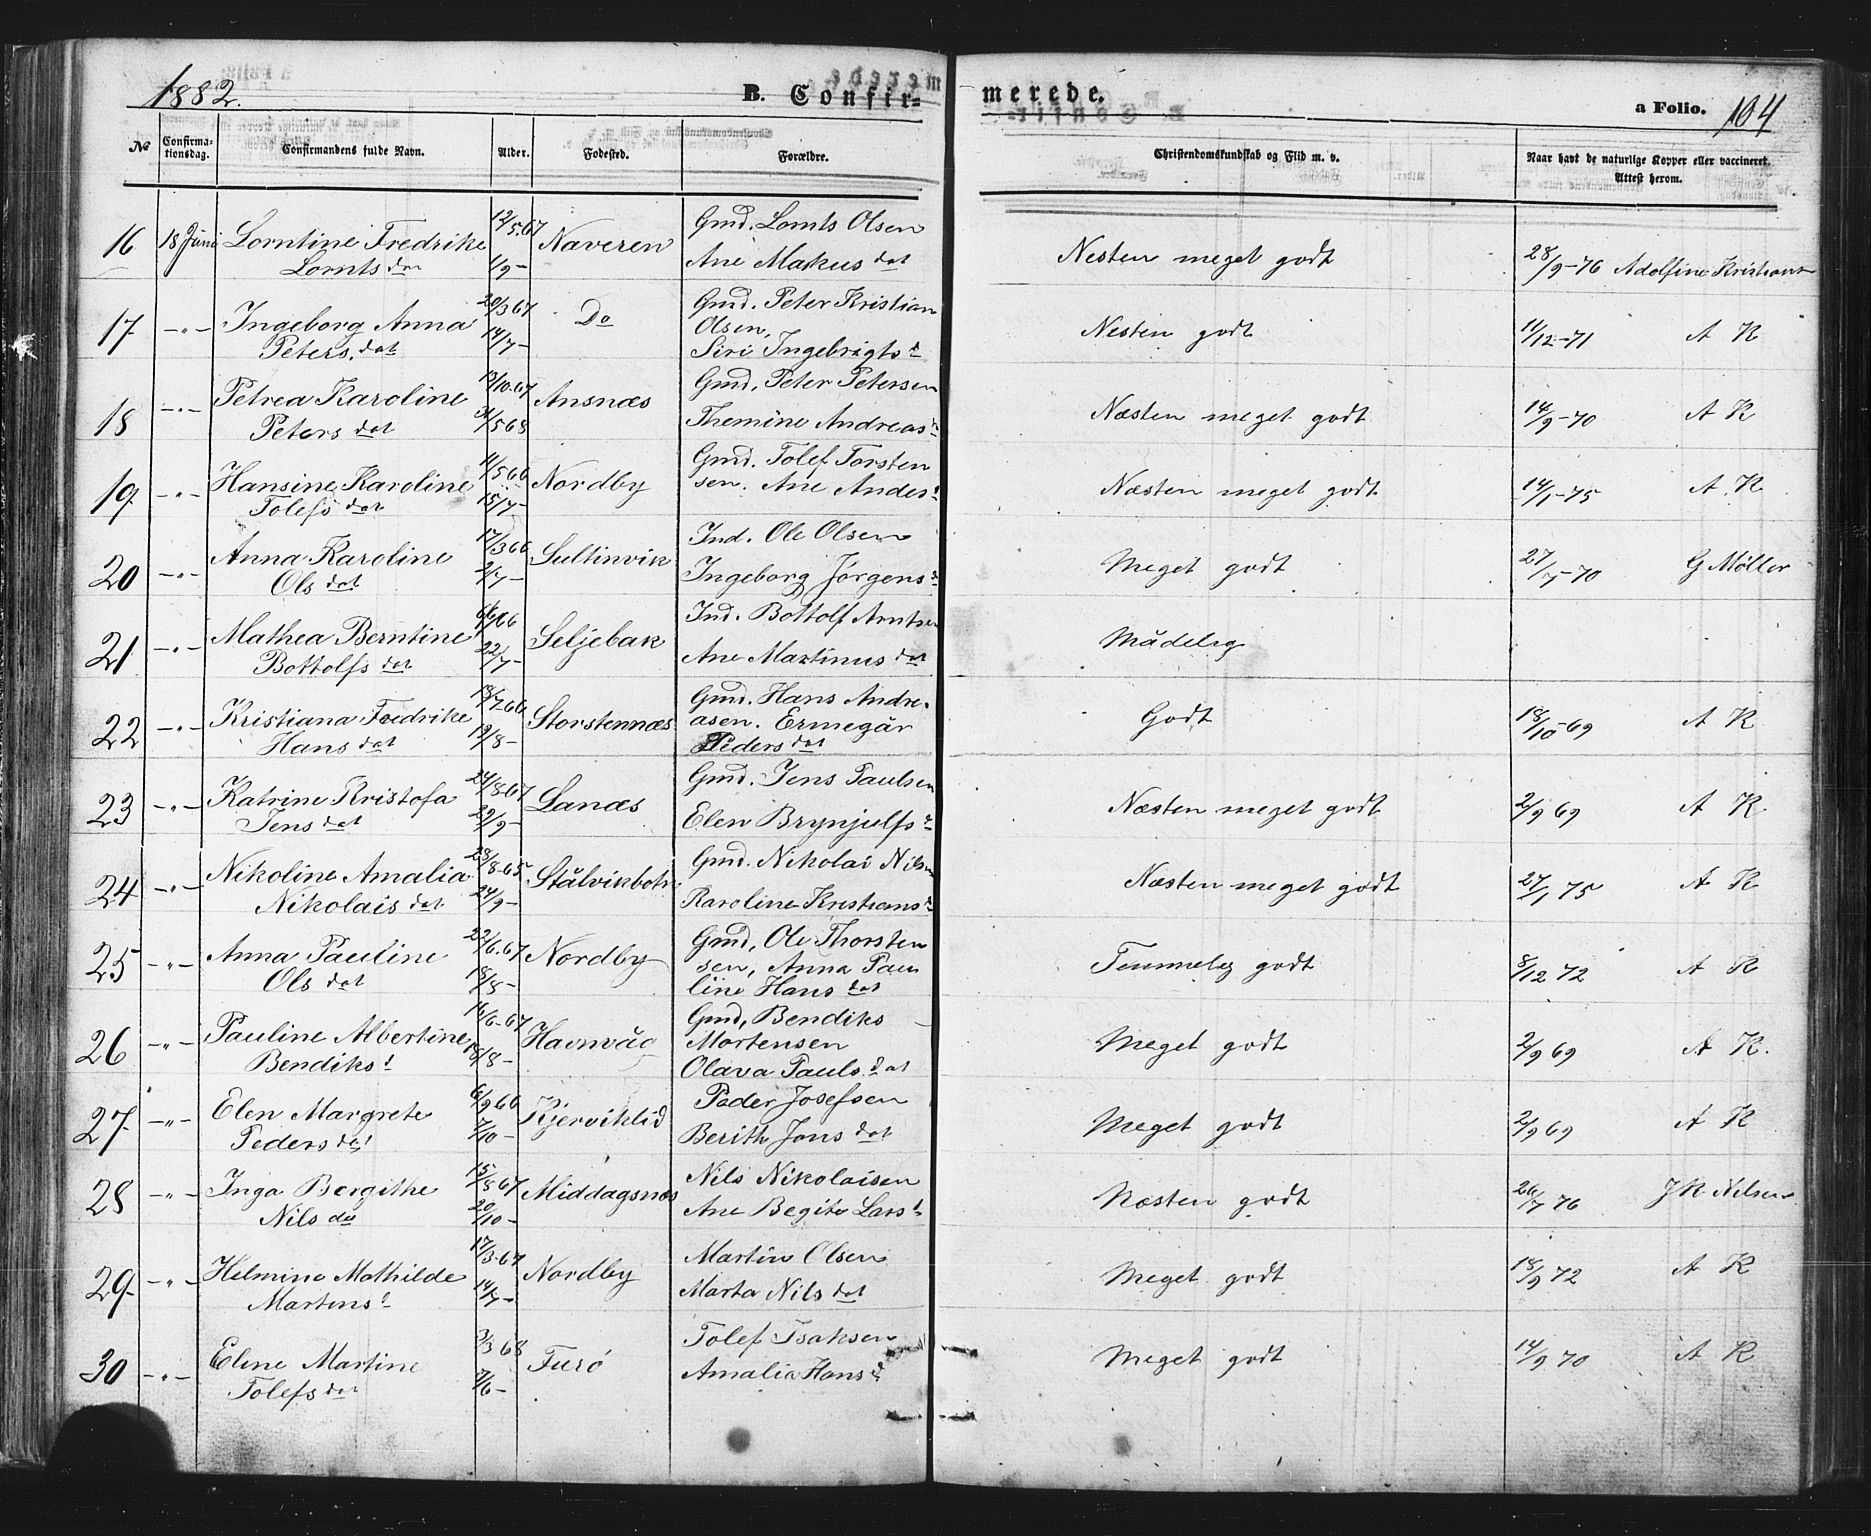 1882. B. Confirmerede. a Folio. 104
No Confirmationsdag. Confirmandens fulde Navn. Alder. Fødested. Forældre. Christendomskundskab og Flid m. v. Naar havt de naturlige Kopper eller vaccineret. Attest herom.
16 18 Juni Lorntine Fredrike 12/5.67 Naveren Gmd. Lornts Olsen Nesten meget godt 28/9-76 Adolfine Kristians
Lornts dat 1/9- Ane Makus dat
17 -"- Ingeborg Anna 20/3 67 Do Gmd. Peter Kristian Nesten godt 11/12-71 A K
Olsen,
Peters. dat 14/7- Siri Ingebrigts d
18 -"- Petrea Karoline 13/10-67 Ansnæs Gmd. Peter Petersen Næsten meget godt 14/9-70 A K
Peters dat 31/5 68 Themine Andreas d
19 -"- Hansine Karoline 11/5 66 Nordby Gmd. Tolef Torsten Næsten meget godt 14/1-75 A. K
Tolefs dat 15/7- sen. Ane Anders
20 -"- Anna Karoline 17/3 66 Sultinvik Ind. Ole Olsen Meget godt 27/7-70 G Møller
Ols dat 2/7- Ingeborg Jørgens d
21 -"- Mathea Berntine 66 Seljebak Ind. Bottolf Arntsen Mådelig
Bottolfs dat 22/7- Ane Martinus dat
22 -"- Kristiana Fredrike 18/7.66 Storstennæs Gmd. Hans Andre- Godt 18/10-69 A K
asen. Ermegår
Hans dat 19/8- Peders dat
23 -"- Katrine Kristofa 24/8-67 Lanæs Gmd. Jens Paulsen Næsten meget godt 2/9 69 A K
Jens dat 29/9- Elen Brynjulfs d
24 -"- Nikoline Amalia 23/8-65 Stålvikbotn Gmd. Nikolai Nilsen Næsten meget godt 27/1 75 A K
Nikolais dat 24/9- Karoline Kristians d
25 -"- Anna Pauline 22/6.67 Nordby Gmd, Ole Thorsten Temmelig godt 8/12 72 A K
sen, Anna Pau
Ols dat 18/8- line Hans dat
26 -"- Pauline Albertine 16/6-67 Havnvåg Gmd, Bendiks Meget godt 2/9 69 A K.
Mortensen
Bendiks d 18/8- Olava Pauls dat
27 -"- Elen Margrete 6/9 66 Kjerviklid Peder Josefsen Meget godt 2/9 69 A K
Peders dat 7/10- Berith Jons dat
28 -"- Inga Bergithe 15/8 67 Middagsnæs Nils Nikolaisen Næsten godt 26/7 76 J K Nilsen
Nils da 20/10- Ane Begite Lars d
29 -"- Helmine Mathilde 17/3-67 Nordby Martin Olsen Meget godt 18/9 72 A K
Martins d 14/7- Marta Nils dat
30 -"- Eline Martine 3/3 68 Furö Tolef Isaksen Meget godt 14/9 70 A K
Tolefs dat 7/6- Amalia Hans d